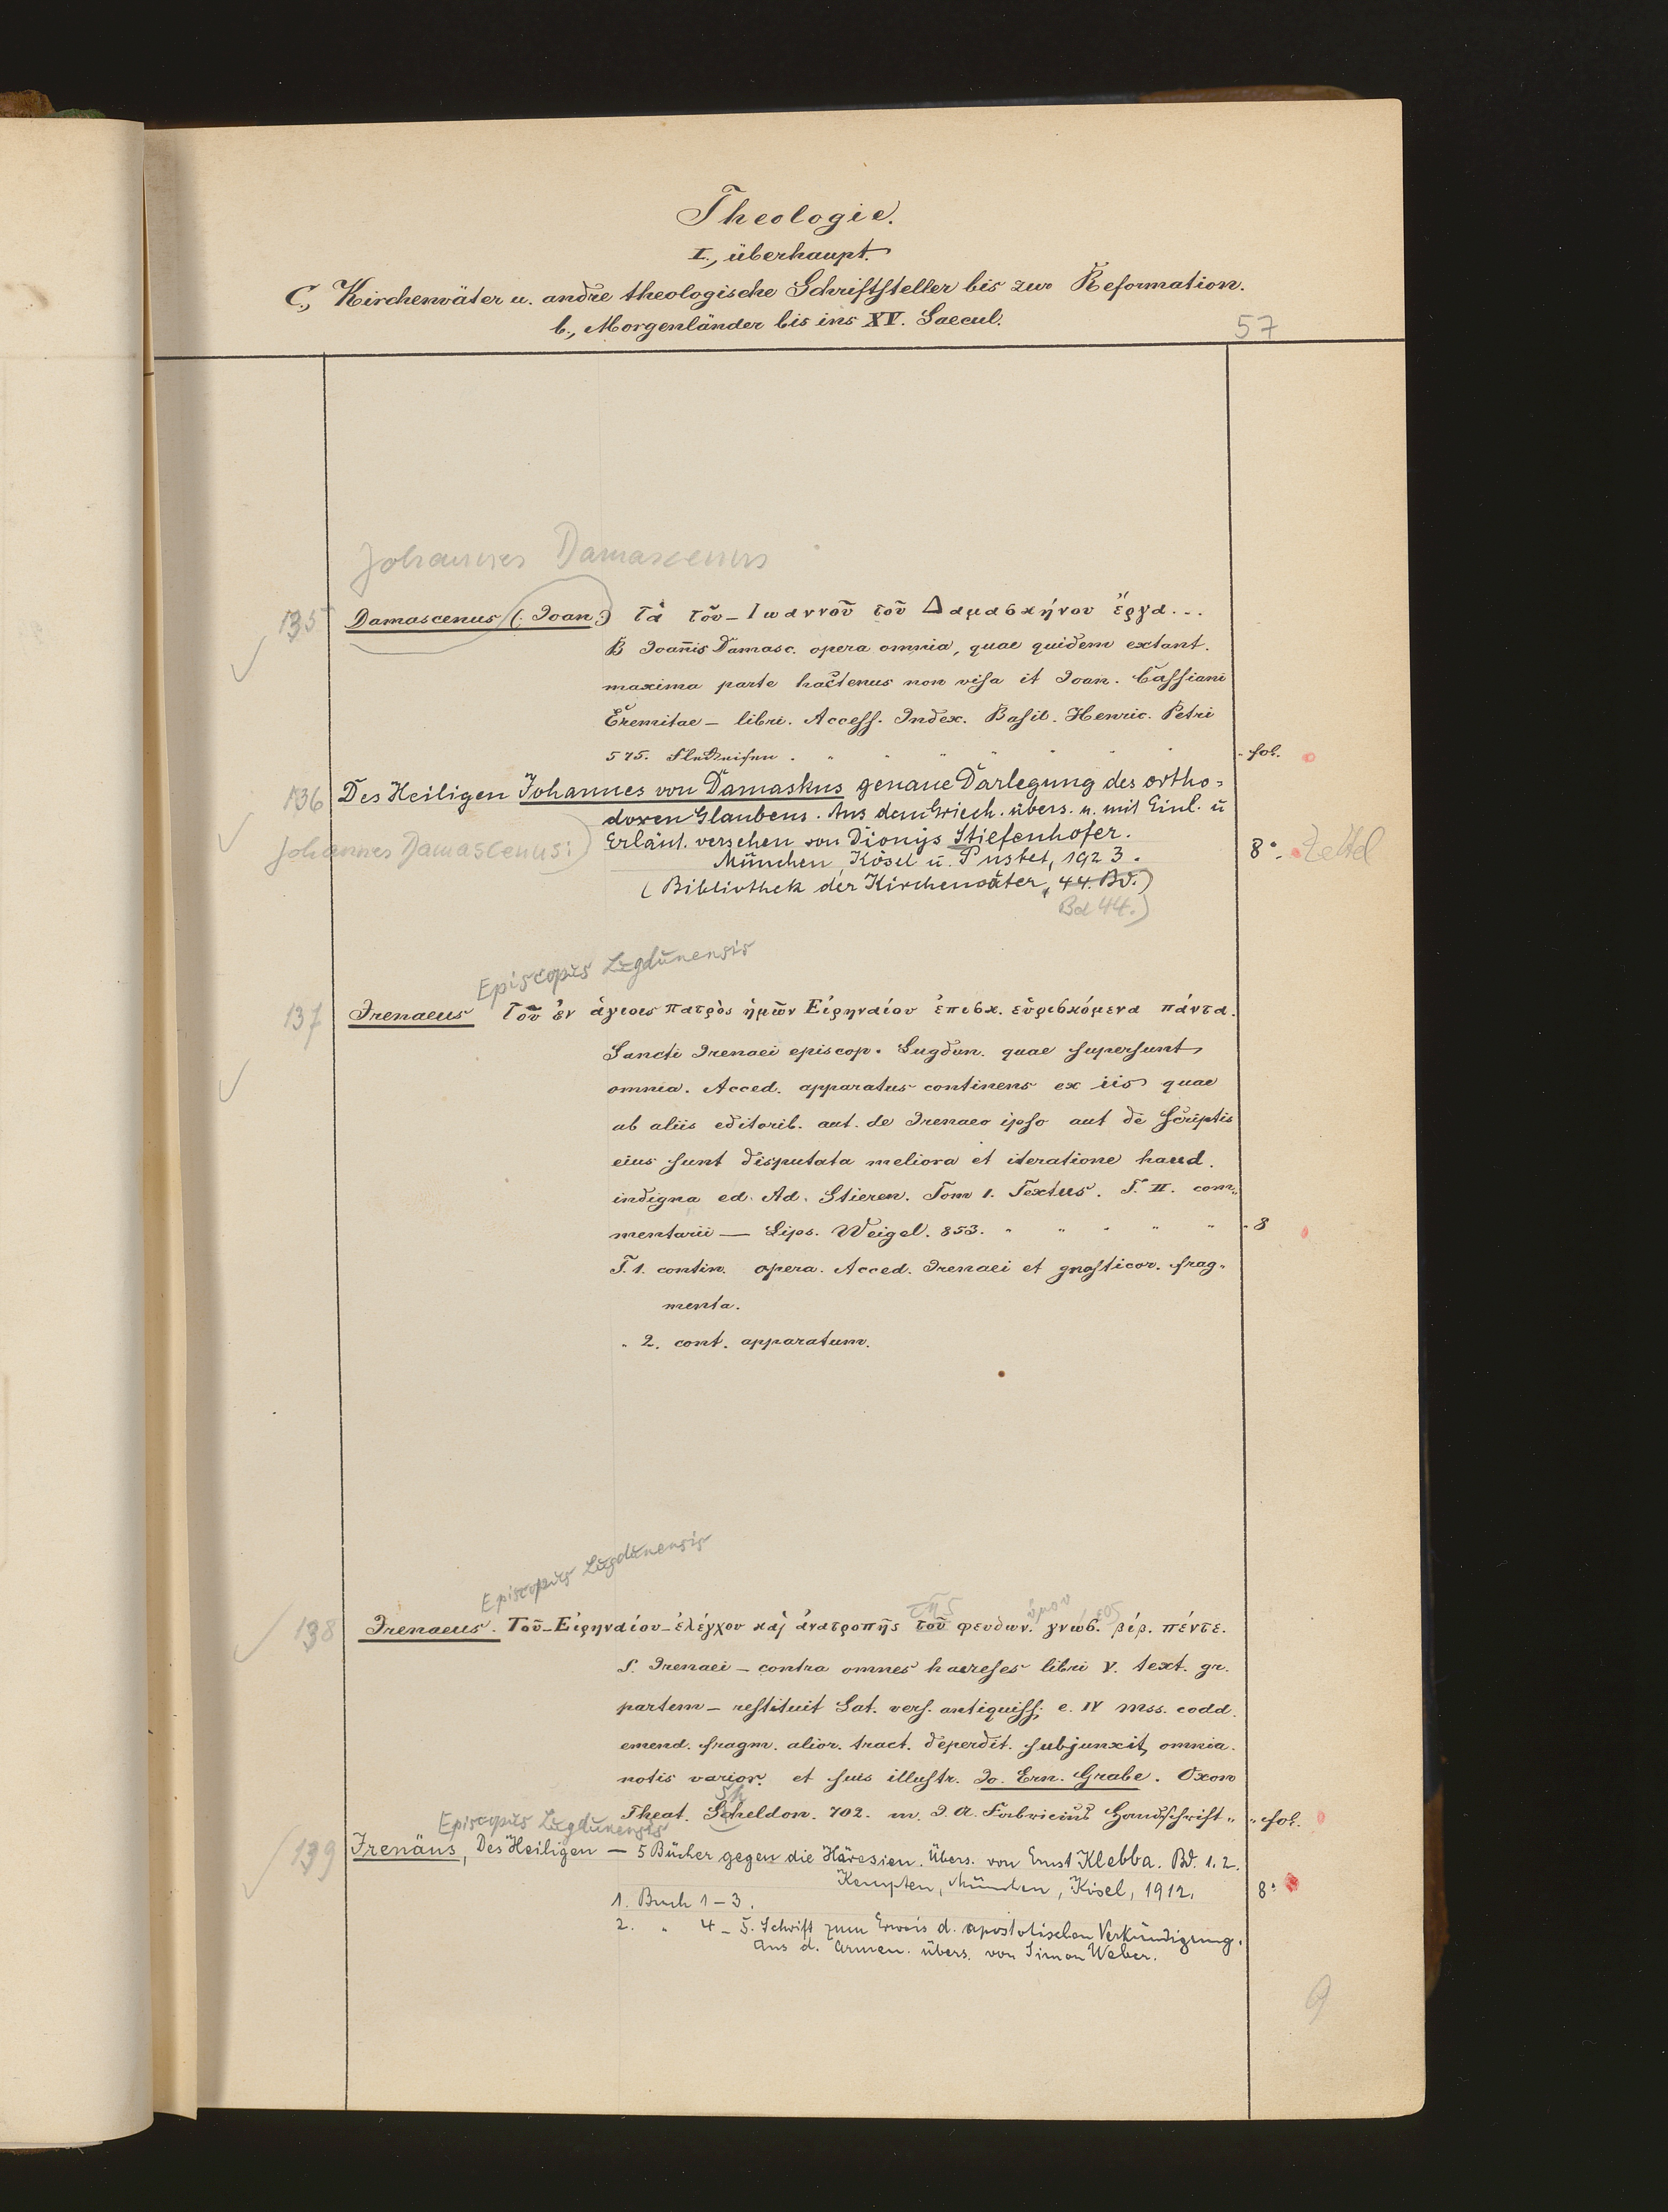 Theologie.
I., überhaupt.
C., Kirchenväter u. andre theologische Schriftsteller bis zur Reformation.
b., Morgenländer bis ins XV. Saecul.
57
Johannes Damascenus
135 Damascenus (: Joan:) Τὰ τοῦ – Ιωαννοῦ τοῦ Δαμασκήνου ἔργα...
B Joañis Damasc. opera omnia, quae quidem extant.
maxima parte hactenus non visa it Joan. Cassiani
Eremitae – libri. Access. Index. Basil. Henric. Petri
575. " " " " " " " fol.
136 Des Heiligen Johannes von Damaskus genaue Darlegung des ortho=
doxen Glaubens. Aus dem Griech. übers. u. mit Einl. u
Johannes Damascenus:) Erläut. versehen von Dionys Stiefenhofer.
München, Kösel u. Pustet, 1923. 8°. Zettel
(Bibliothek der Kirchenväter, 44. Bd.)
Bd 44.)
Episcopus Lugdunensis
137 Irenaeus Τοῦ ἐν ἁγιοις πατρὸς ἡμῶν Εἰρηναίου ἐπισκ. εὑρισκόμενα πάντα.
Sancti Irenaei episcop. Lugdun. quae supersunt
omnia. Acced. apparatus continens ex iis quae
ab aliis editorib. aut. de Irenaeo ipso aut de scriptis
eius sunt disputata meliora et iteratione haud.
indigna ed. Ad. Stieren. Tom 1. Textus. T. II. com„
mentarii — Lips. Weigel. 853. " " " " " " 8
T. 1. contin. opera. Acced. Irenaei et gnosticor. frag„
menta.
" 2. cont. apparatum.
Episcopus Lugdunensis
της ύμου εος
138 Irenaeus. Τοῦ – Εἰρηναίου – ἐλέγχου καὶ ἀνατροπῆς τοῦ ψευδων. γνωσ. βίβ. πέντε.
S. Irenaei – contra omnes haereses libri V. text. gr.
partem – restituit Lat. vers. antiquiss; e. IV mss. codd.
emend. fragm. alior. tract. deperdit. subjunxit, omnia.
notis varior. et suis illustr. Jo. Ern. Grabe. Oxon
Sh
Theat. Scheldon. 702. m. J. A. Fabricius Handschrift " " fol.
Episcopus Lugdunensis
139 Irenäus, Des Heiligen — 5 Bücher gegen die Häresien. Übers. von Ernst Klebba. Bd. 1. 2.
Kempten, München, Kösel, 1912. 8°
1. Buch 1–3.
2. " 4–5. Schrift zum Erweis d. apostolischen Verkündigung.
Aus d. Armen. übers. von Simon Weber.
9